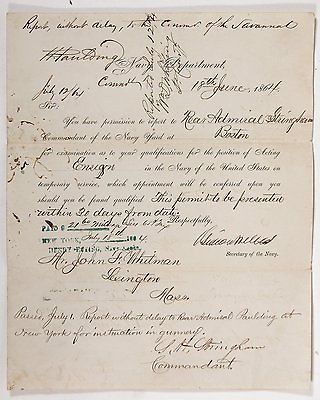 Report, without delay, to the Comdr of the Savannah
H Paulding
Navy Department,
July 12/64
Comdt
18th June, 1864.
Sir:
You have permission to report to Rear Admiral Stringham
Commandant of the Navy Yard at Boston
for examination as to your qualifications for the position of Acting
Ensign in the Navy of the United States on
temporary service, which appointment will be conferred upon you
should you be found qualified. This permit to be presented
within 20 days from date.
Respectfully,
Gideon Welles
Secretary of the Navy.
PAID $
NEW YORK, July 18 1864.
HENRY ETTING, Navy Agent.
Mr. John F. Whitman
Lexington
Mass
Passed, July 1. Report without delay to Rear Admiral Paulding at
New York for instruction in gunnery.
S. H. Stringham
Commandant.